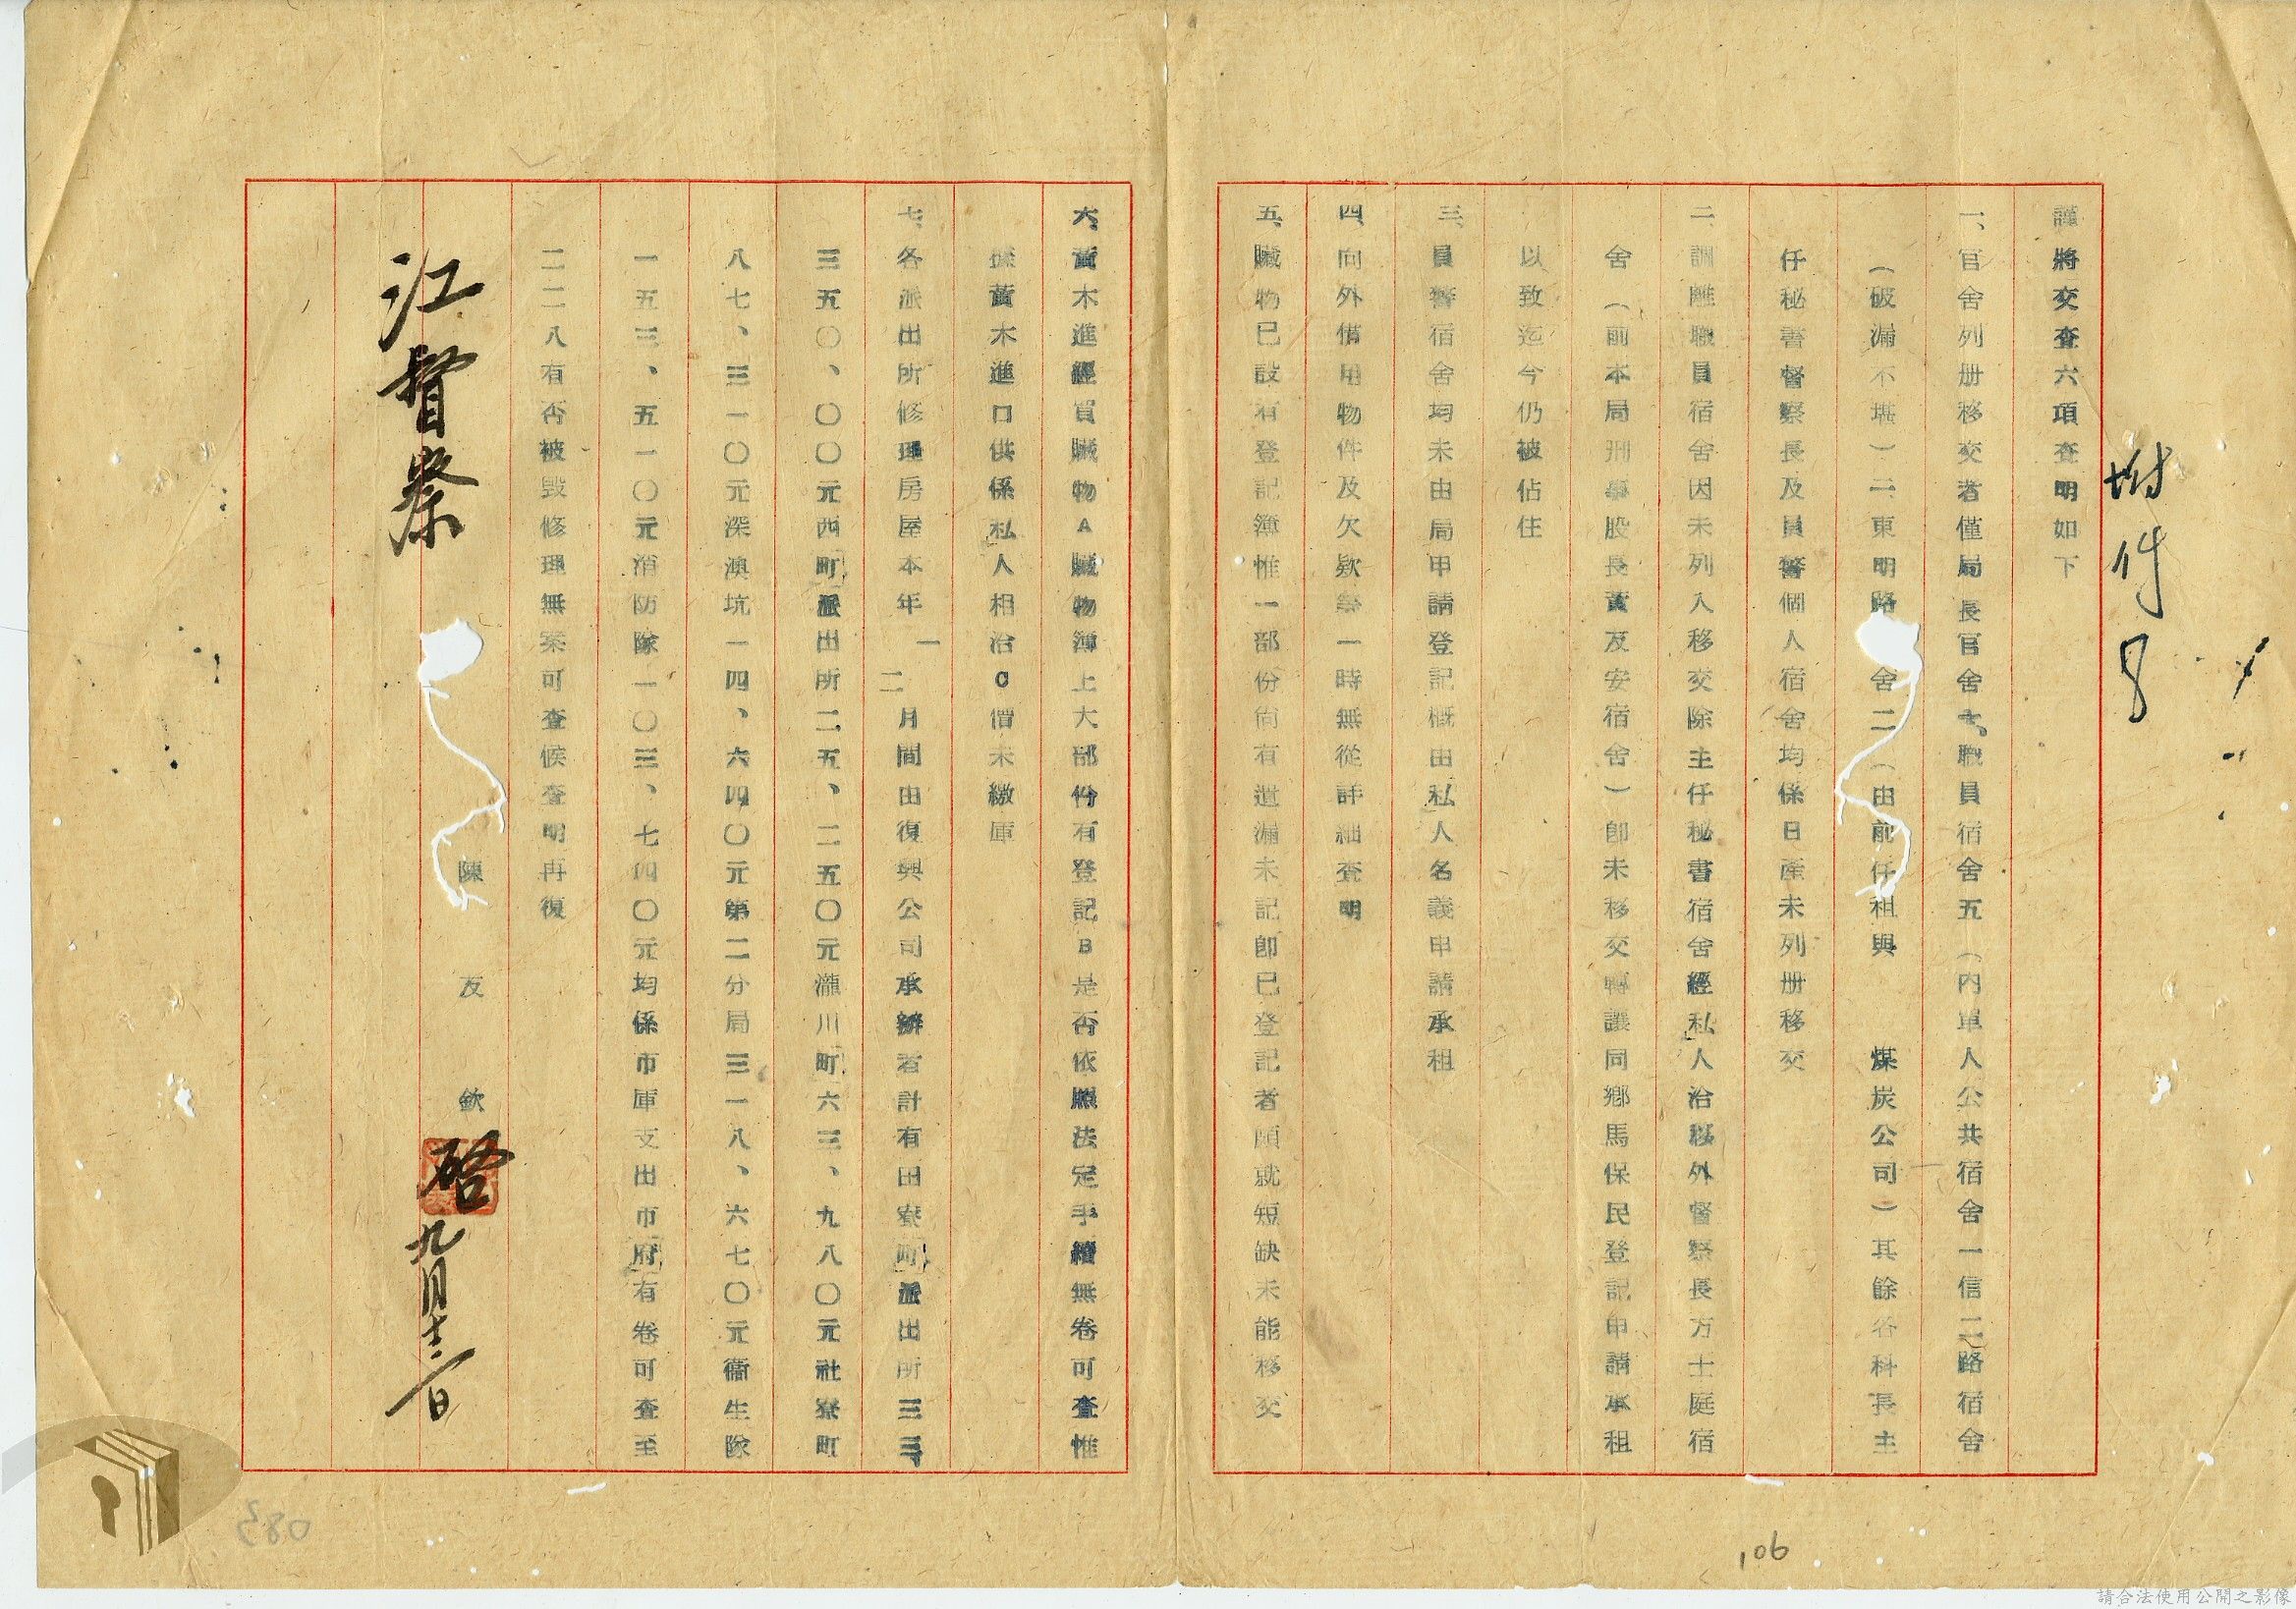 附件8
謹將交查六項查明如下
一、官舍列册移交者僅局長官舍七。職員宿舍五（內單人公共宿舍一信二路宿舍
（破漏不堪）二東明路 舍二（由前任租與 煤炭公司）其餘各科長主
任秘書督察長及員警個人宿舍均係日產未列册移交
二、調離職員宿舍因未列入移交除主任秘書宿舍經私人洽移外督察長方士庭宿
舍（前本局刑事股長黃及安宿舍）卽未移交轉讓同鄉馬保民登記申請承租
以致迄今仍被佔住
三、員警宿舍均未由局申請登記概由私人名義申請承租
四、向外借用物件及欠欵等一時無從詳細查明
五、贓物已設有登記簿惟一部份尙有遺漏未記卽已登記者頗就短缺未能移交
六、黃木進經買贓物A贓物簿上大部份有登記B是否依照法定手續無卷可查惟
據黃木進口供係私人相洽C價未繳庫
七、各派出所修理房屋本年一二月間由復興公司承辦者計有田寮町派出所三三、
三五〇、〇〇〇元西町派出所二五、二五〇元瀧川町六三、九八〇元社寮町
八七、三一〇元深澳坑一四、六四〇元第二分局三一八、六七〇元衞生隊
一五三、五一〇元消防隊一〇三、七四〇元均係市庫支出市府有卷可查至
二二八有否被毀修理無案可查候查明再復
江督察
陳友欽啓九月十三日
083
106
請合法使用公開之影像